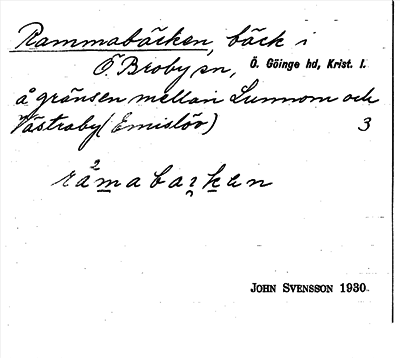 Rammabäcken, bäck i
Ö. Broby sn, Ö. Göinge hd, Krist. l.
å gränsen mellan Lunnom och
Västraby (Emislöv) 3
JOHN SVENSSON 1930.